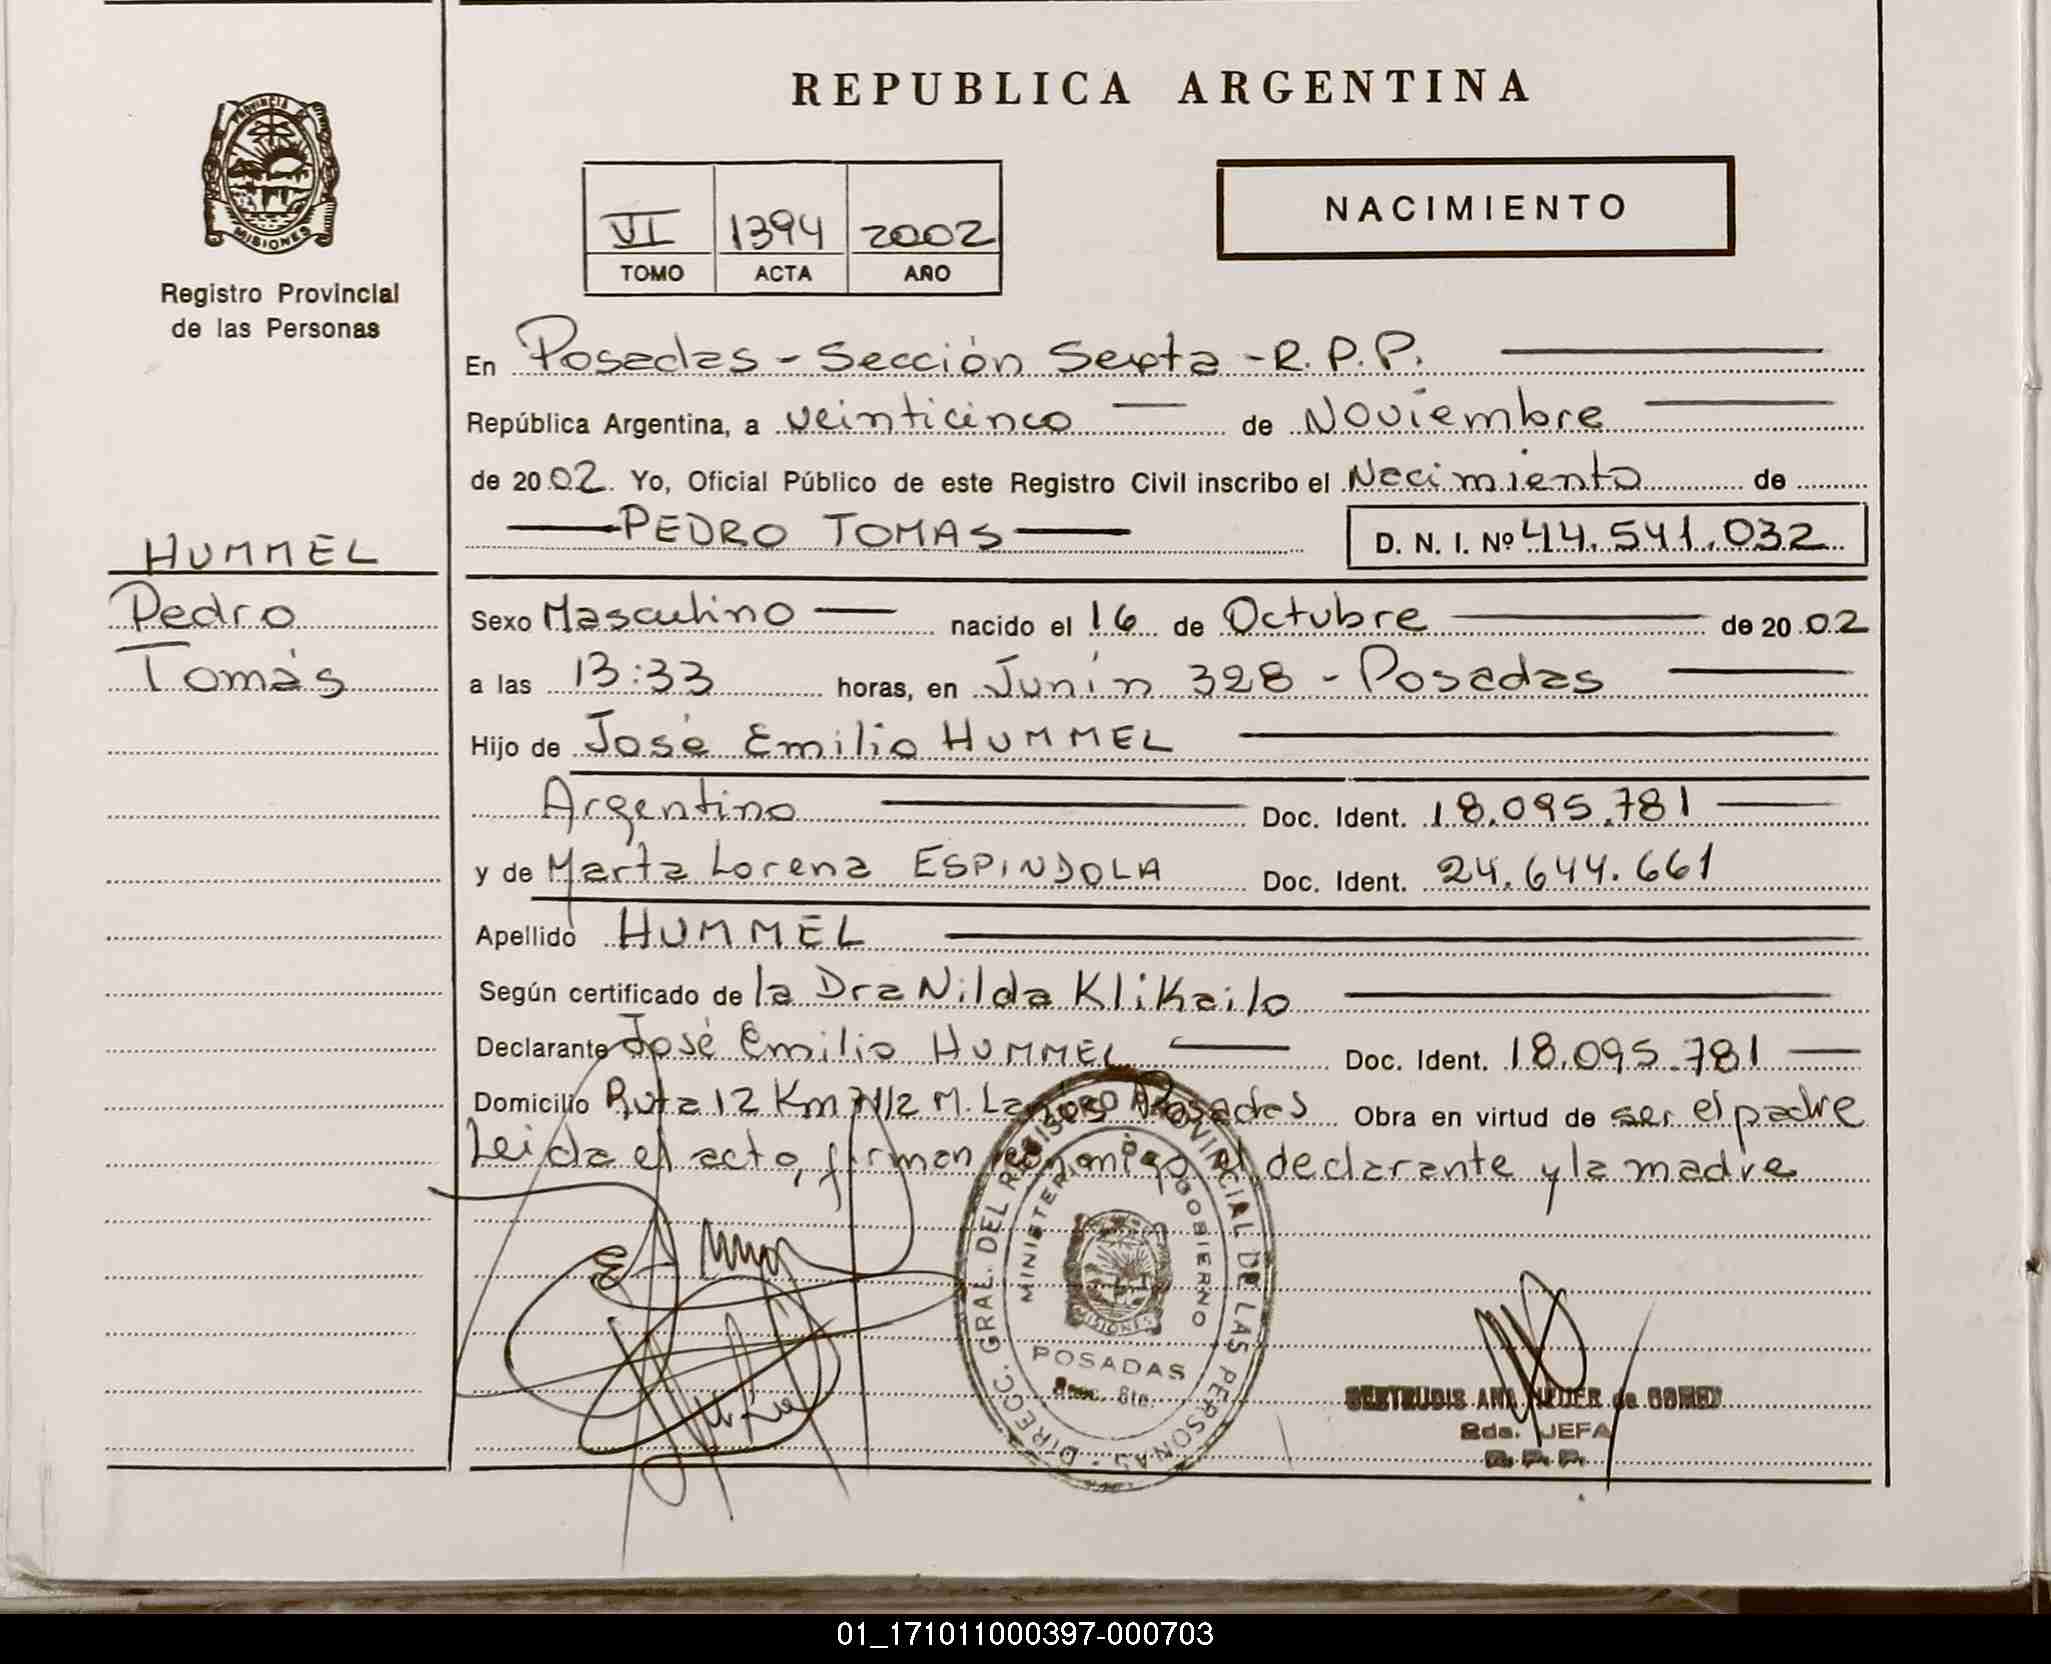 REPUBLICA ARGENTINA
PROVINCIA
MISIONES
Registro Provincial
de las Personas
VI 1394 2002
TOMO ACTA AÑO
NACIMIENTO
En Posadas - Sección Sexta - R.P.P.
República Argentina, a veinticinco de Noviembre
de 2002. Yo, Oficial Público de este Registro Civil inscribo el Nacimiento de
PEDRO TOMAS D. N. I. Nº 44.541.032
HUMMEL
Pedro
Tomás
Sexo Masculino nacido el 16 de Octubre de 2002
a las 13:33 horas, en Junín 328 - Posadas
Hijo de José Emilio HUMMEL
Argentino Doc. Ident. 18.095.781
y de Marta Lorena ESPINDOLA Doc. Ident. 24.644.661
Apellido HUMMEL
Según certificado de la Dra Nilda Klikailo
Declarante José Emilio HUMMEL Doc. Ident. 18.095.781
Domicilio Ruta 12 Km 7 1/2 M. Posadas Obra en virtud de ser el padre
Leida el acto, firman conmigo el declarante y la madre
DIRECC. GRAL. DEL REGISTRO PROVINCIAL DE LAS PERSONAS
MINISTERIO DE GOBIERNO
MISIONES
POSADAS
Secc. 6ta.
GERTRUDIS ANA de GOMEZ
2da. JEFA
R. P. P.
01_171011000397-000703